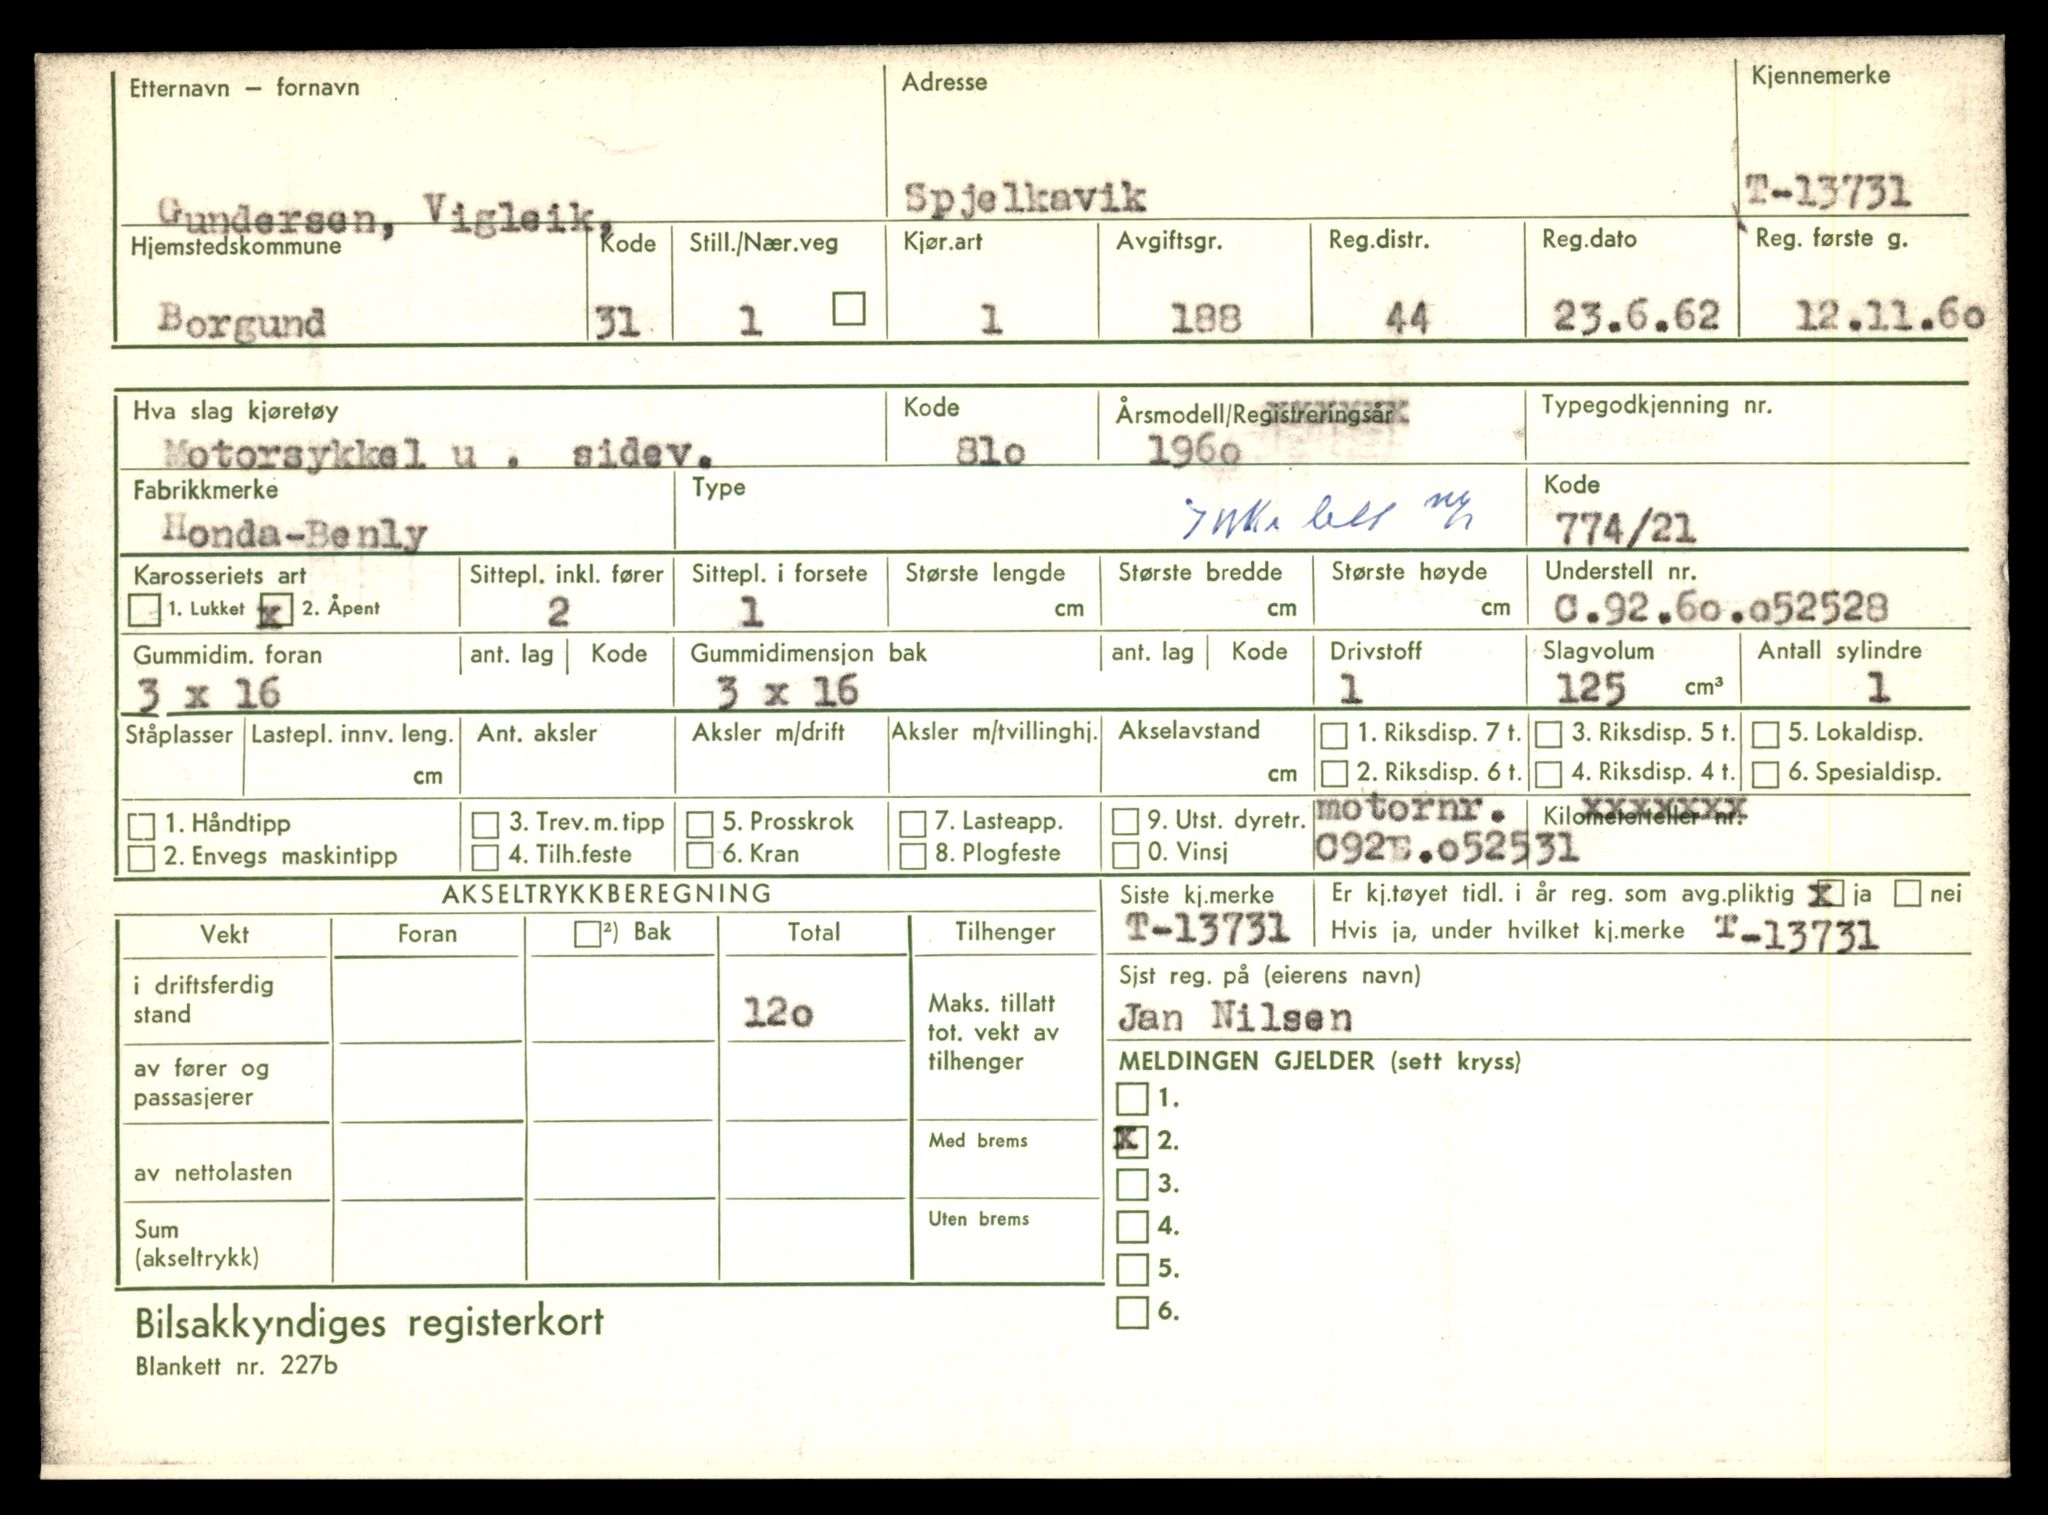 Etternavn — fornavn
Adresse
Kjennemerke
Gundersen, Vigleik,
Spjelkavik
T-13731
Hjemstedskommune
Kode
Still./Nær.veg
Kjør.art
Avgiftsgr.
Reg.distr.
Reg.dato
Reg. første g.
Borgund
31
1
1
188
44
23.6.62
12.11.60
Hva slag kjøretøy
Kode
Årsmodell/Registreringsår
Typegodkjenning nr.
Motorsykkel u . sidev.
81o
196o
Fabrikkmerke
Type
Kode
Honda-Benly
774/21
Karosseriets art
Sittepl. inkl. fører
Sittepl. i forsete
Største lengde
Største bredde
Største høyde
Understell nr.
1. Lukket x 2. Åpent
2
1
cm
cm
cm
C.92.6o.o52528
Gummidim. foran
ant. lag
Kode
Gummidimensjon bak
ant. lag
Kode
Drivstoff
Slagvolum
Antall sylindre
3 x 16
3 x 16
1
125 cm³
1
Ståplasser
Lastepl. innv. leng.
cm
Ant. aksler
Aksler m/drift
Aksler m/tvillinghj.
Akselavstand
cm
1. Riksdisp. 7 t.
3. Riksdisp. 5 t.
5. Lokaldisp.
2. Riksdisp. 6 t.
4. Riksdisp. 4 t.
6. Spesialdisp.
1. Håndtipp
3. Trev. m. tipp
5. Prosskrok
7. Lasteapp.
9. Utst. dyretr.
motornr.
Kilometerteller nr.
2. Envegs maskintipp
4. Tilh.feste
6. Kran
8. Plogfeste
0. Vinsj
C92E.o52531
AKSELTRYKKBEREGNING
Siste kj.merke
Er kj.tøyet tidl. i år reg. som avg.pliktig x ja nei
T-13731
Hvis ja, under hvilket kj.merke T-13731
Vekt
Foran
²) Bak
Total
Tilhenger
Sjst reg. på (eierens navn)
Jan Nilsen
i driftsferdig
stand
12o
Maks. tillatt
tot. vekt av
tilhenger
av fører og
passasjerer
Med brems
av nettolasten
Uten brems
Sum
(akseltrykk)
MELDINGEN GJELDER (sett kryss)
1.
x 2.
3.
4.
5.
6.
Bilsakkyndiges registerkort
Blankett nr. 227b